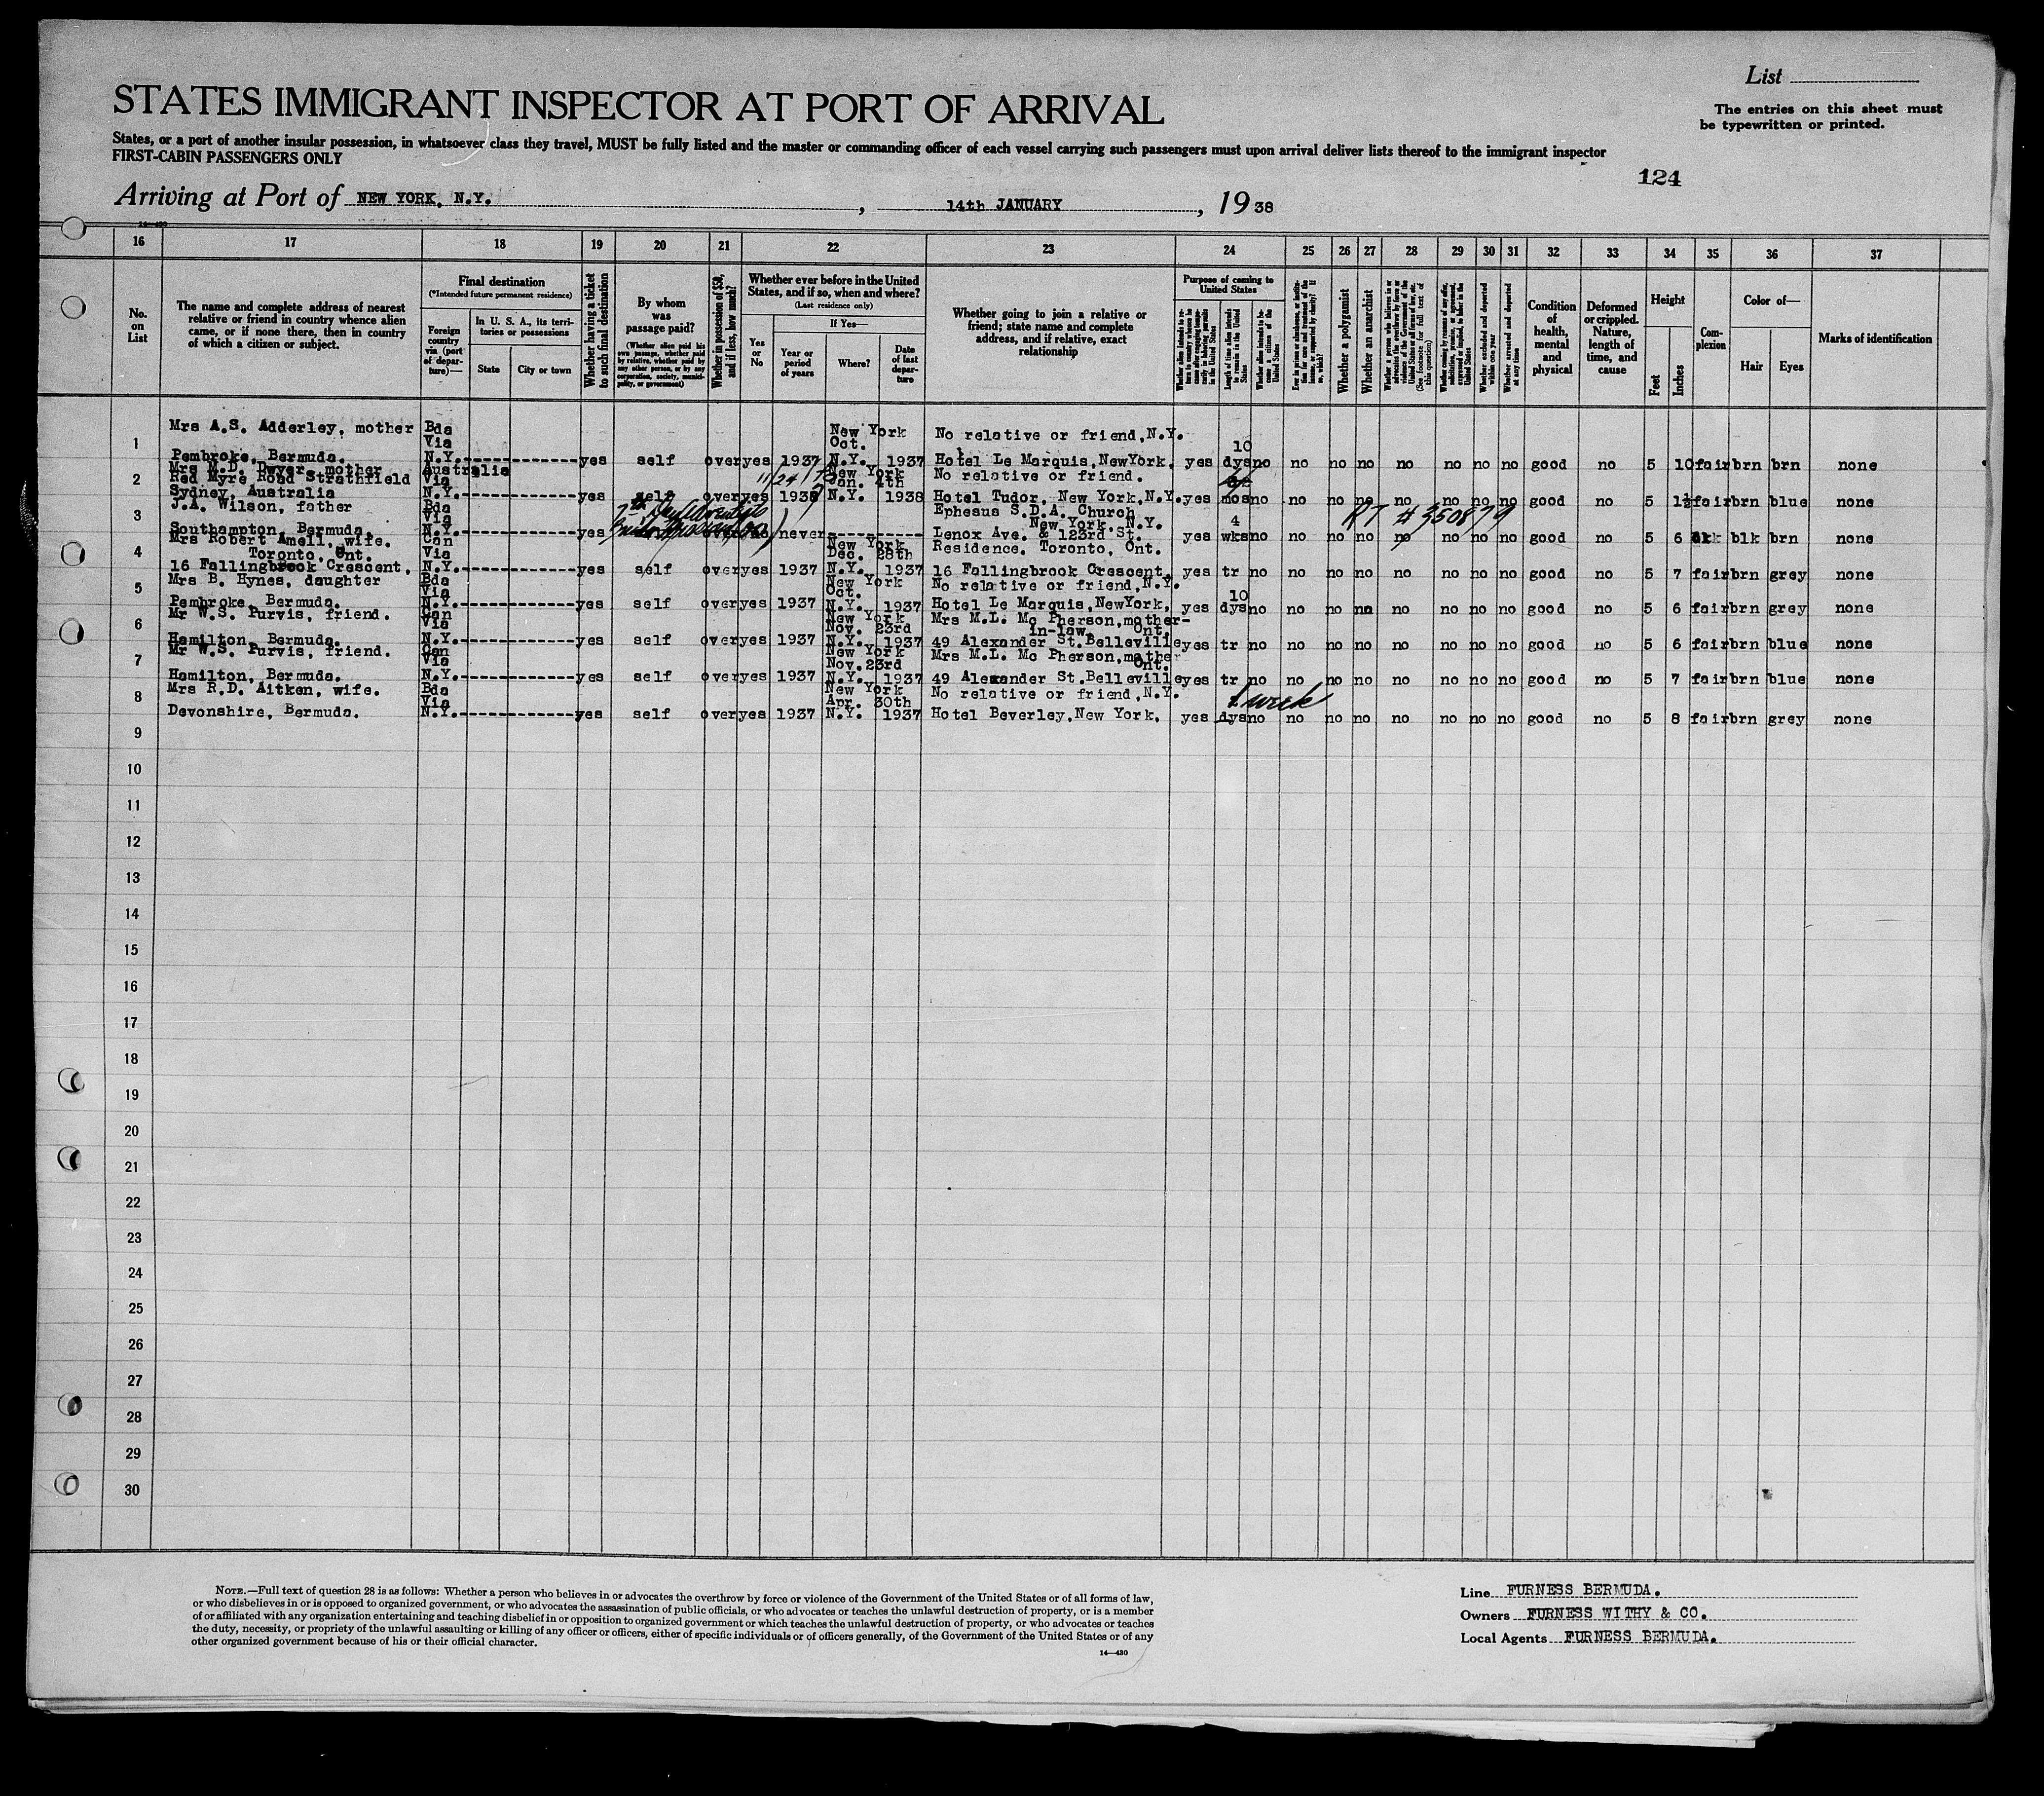 List
STATES IMMIGRANT INSPECTOR AT PORT OF ARRIVAL
The entries on this sheet must
be typewritten or printed.
States, or a port of another insular possession, in whatsoever class they travel, MUST be fully listed and the master or commanding officer of each vessel carrying such passengers must upon arrival deliver lists thereof to the immigrant inspector
FIRST-CABIN PASSENGERS ONLY
124
Arriving at Port of NEW YORK, N.Y. , 14th JANUARY , 19 38
16 17 18 19 20 21 22 23 24 25 26 27 28 29 30 31 32 33 34 35 36 37
No. on List
The name and complete address of nearest relative or friend in country whence alien came, or if none there, then in country of which a citizen or subject.
Final destination
(*Intended future permanent residence)
Foreign country via (port of departure)—
In U. S. A., its territories or possessions
State
City or town
Whether having a ticket to such final destination
By whom was passage paid?
(Whether alien paid his own passage, whether paid by relative, whether paid by any other person, or by any corporation, society, municipality, or government)
Whether in possession of $50, and if less, how much?
Whether ever before in the United States, and if so, when and where?
(Last residence only)
Yes or No
If Yes—
Year or period of years
Where?
Date of last departure
Whether going to join a relative or friend; state name and complete address, and if relative, exact relationship
Purpose of coming to United States
Length of time alien intends to remain in the United States
Whether alien intends to become a citizen of the United States
Whether a polygamist
Whether an anarchist
Whether excluded and deported within one year
Whether arrested and deported at any time
Condition of health, mental and physical
Deformed or crippled. Nature, length of time, and cause
Height
Feet
Inches
Complexion
Color of—
Hair
Eyes
Marks of identification
1 Mrs A.S. Adderley, mother Bda Via New York Oct. No relative or friend, N.Y. 10
Pembroke, Bermuda. N.Y. yes self over yes 1937 N.Y. 1937 Hotel Le Marquis, NewYork, yes dys no no no no no no no no good no 5 10 fair brn brn none
2 Mrs M.D. Dwyer, mother Australia
Red Myre Road Strathfield Via 11/24/ New York Jan. 4th No relative or friend.
Sydney, Australia N.Y. yes self over yes 1938 N.Y. 1938 Hotel Tudor, New York, N.Y. yes mos no no no no no no no no good no 5 1½ fair brn blue none
3 J.A. Wilson, father Bda Via 7th Day Adventist Ephesus S.D.A. Church
New York, N.Y. 4 RT # 350879
Southampton, Bermuda. N.Y. yes never Lenox Ave. & 123rd St. yes wks no no no no no no no no good no 5 6 blk brn none
4 Mrs Robert Amell, wife. Can New York
Toronto, Ont. Via Dec. 28th Residence. Toronto, Ont.
16 Fallingbrook Crescent, N.Y. yes self over yes 1937 N.Y. 1937 16 Fallingbrook Crescent, yes tr no no no no no no no no good no 5 7 fair brn grey none
5 Mrs B. Hynes, daughter Bda Via New York Oct. No relative or friend, N.Y. 10
Pembroke, Bermuda. N.Y. yes self over yes 1937 N.Y. 1937 Hotel Le Marquis, NewYork, yes dys no no no no no no no no good no 5 6 fair brn grey none
6 Mr W.S. Purvis, friend. Can Via New York Nov. 23rd Mrs M.L. Mc Pherson, mother-
in-law, Ont.
Hamilton, Bermuda. N.Y. yes self over yes 1937 N.Y. 1937 49 Alexander St. Belleville yes tr no no no no no no no no good no 5 6 fair brn blue none
7 Mr W.S. Purvis, friend. Can Via New York Nov. 23rd Mrs M.L. Mc Pherson, mother
Ont.
Hamilton, Bermuda. N.Y. yes self over yes 1937 N.Y. 1937 49 Alexander St. Belleville yes tr no no no no no no no no good no 5 7 fair brn blue none
8 Mrs R.D. Aitken, wife. Bda Via New York Apr. 30th No relative or friend, N.Y. 1 week
Devonshire, Bermuda. N.Y. yes self over yes 1937 N.Y. 1937 Hotel Beverley, New York, yes dys no no no no no no no no good no 5 8 fair brn grey none
9
10
11
12
13
14
15
16
17
18
19
20
21
22
23
24
25
26
27
28
29
30
NOTE.—Full text of question 28 is as follows: Whether a person who believes in or advocates the overthrow by force or violence of the Government of the United States or of all forms of law,
or who disbelieves in or is opposed to organized government, or who advocates the assassination of public officials, or who advocates or teaches the unlawful destruction of property, or is a member
of or affiliated with any organization entertaining and teaching disbelief in or opposition to organized government or which teaches the unlawful destruction of property, or who advocates or teaches
the duty, necessity, or propriety of the unlawful assaulting or killing of any officer or officers, either of specific individuals or of officers generally, of the Government of the United States or of any
other organized government because of his or their official character.
14—430
Line FURNESS BERMUDA.
Owners FURNESS WITHY & CO.
Local Agents FURNESS BERMUDA.